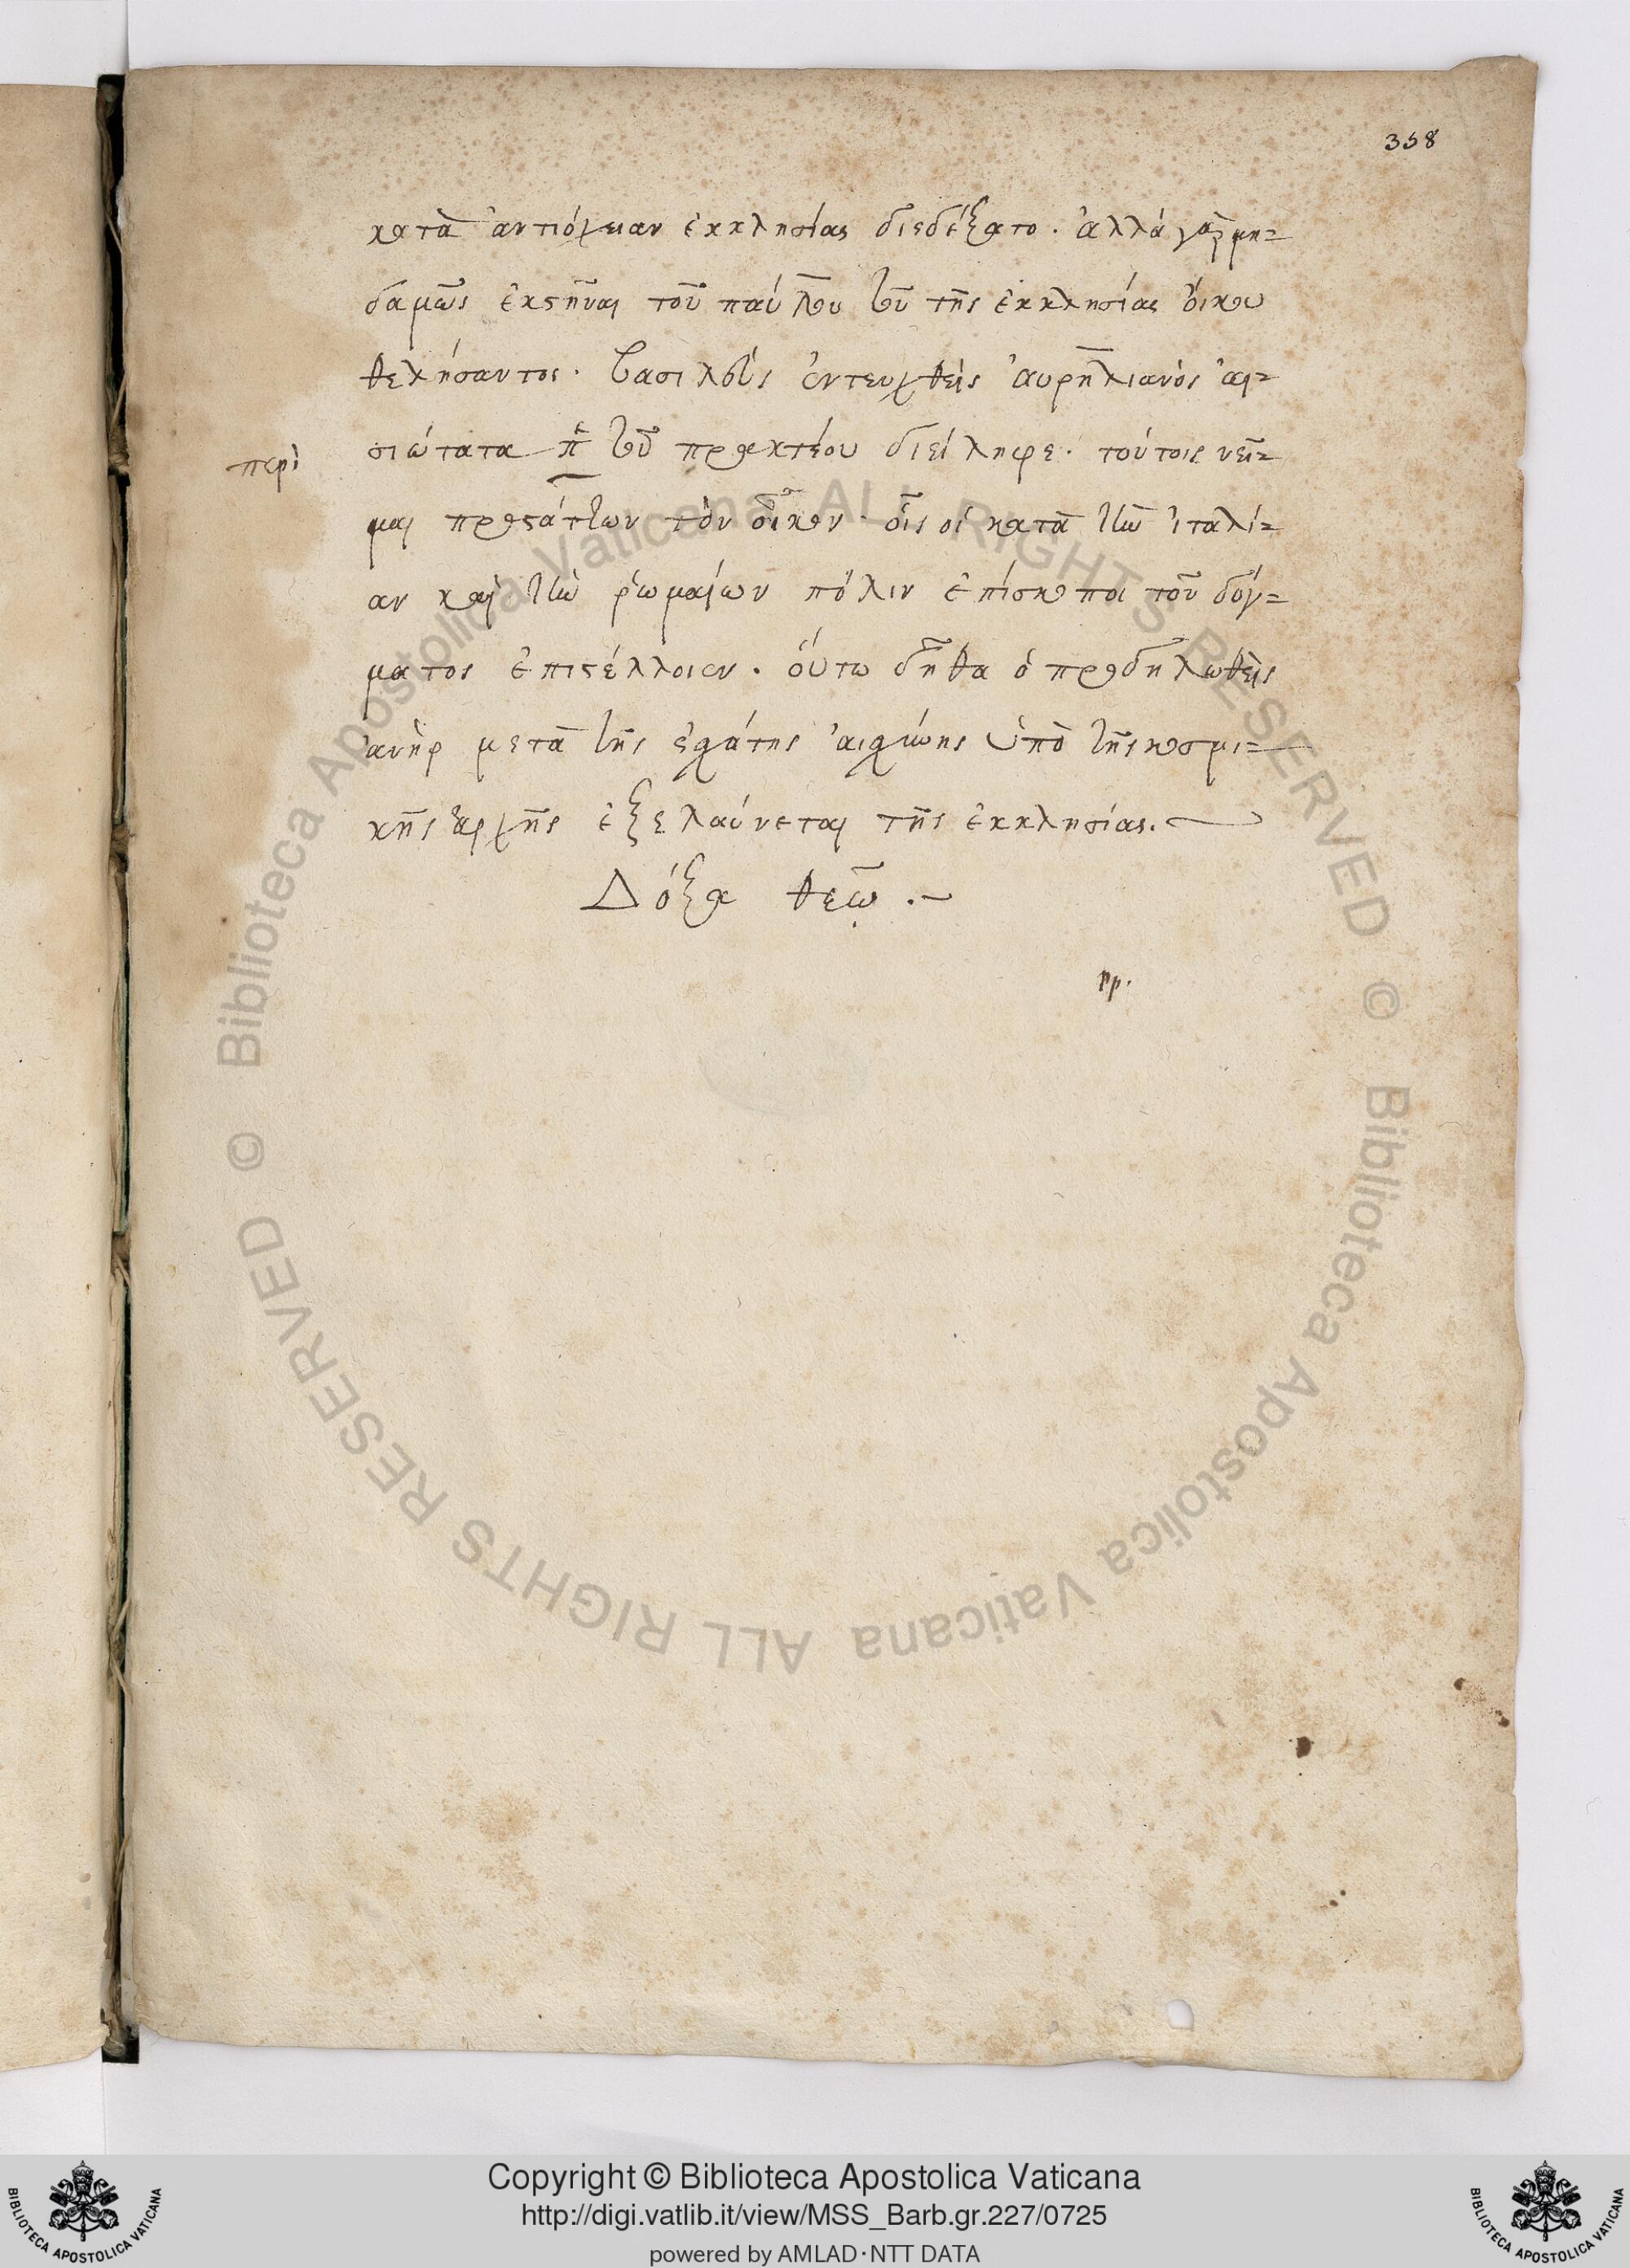 358
κατὰ ἀντιόχειαν ἐκκλησίας διεδέξατο. ἀλλά γὰρ μη=
δαμῶς ἐκστῆναι τοῦ παύλου τοῦ τῆς ἐκκλησίας ὄικου
θελήσαντος. βασιλεὺς ἐντευχθεὶς ἀυρηλιανὸς ἀι=
περὶ
σιώτατα π τοῦ πρακτέου διείληφε. τούτοις νεῖ=
μαι προστάττων τὸν οἶκον. οἷς οἱ κατὰ τὴν ἰταλί=
αν καὶ τὴν ῥωμαίων πόλιν ἐπίσκοποι τοῦ δόγ=
ματος ἐπιστέλλοιεν. ὅυτω δῆθα ὁ προδηλωθεὶς
ἀνὴρ μετὰ τῆς ἐσχάτης ἀισχύνης ὑπὸ τῆς κοσμι=
κῆς ἀρχῆς ἐξελαύνεται τῆς ἐκκλησίας.
Δόξα θεῷ.
pp.
© Biblioteca Apostolica Vaticana ALL RIGHTS RESERVED © Biblioteca Apostolica Vaticana ALL RIGHTS RESERVED
Copyright © Biblioteca Apostolica Vaticana
http://digi.vatlib.it/view/MSS_Barb.gr.227/0725
powered by AMLAD·NTT DATA
BIBLIOTECA APOSTOLICA VATICANA
BIBLIOTECA APOSTOLICA VATICANA